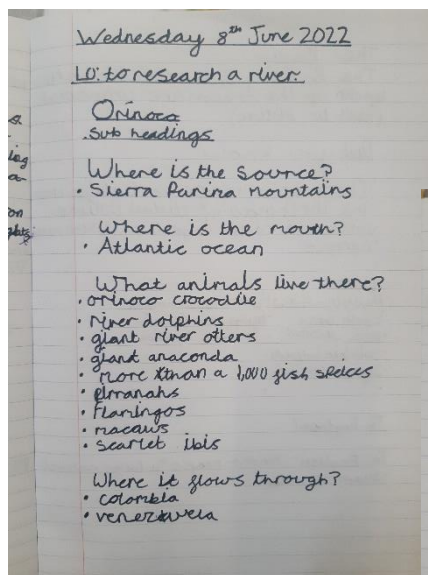 Wednesday 8th June 2022
LO: to research a river.
Orinoco
Sub headings
Where is the source?
• Sierra Parina mountains
Where is the mouth?
• Atlantic ocean
What animals live there?
• orinoco crocodile
• river dolphins
• giant river otters
• giant anaconda
• more than a 1,000 fish speices
• pirranahs
• Flamingos
• macaws
• scarlet ibis
Where it flows through?
• colombia
• venezuela